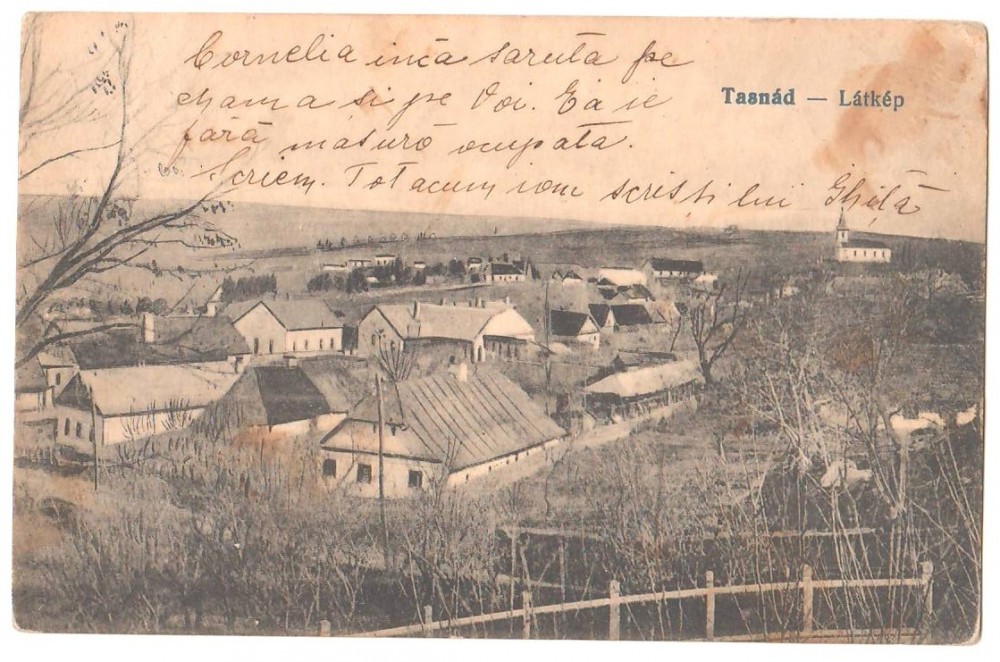 Cornelia incă saruta pe
Mama si pe Voi. Ea ie
fără masură ocupata.
Scriem. Tot acum iom scris si lui Ghiță
Tasnád — Látkép